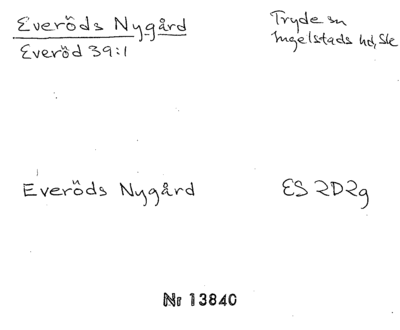 Everöds Nygård
Everöd 39:1
Tryde sn
Ingelstads hd, Sk
Everöds Nygård
ES 2D2g
Nr 13840